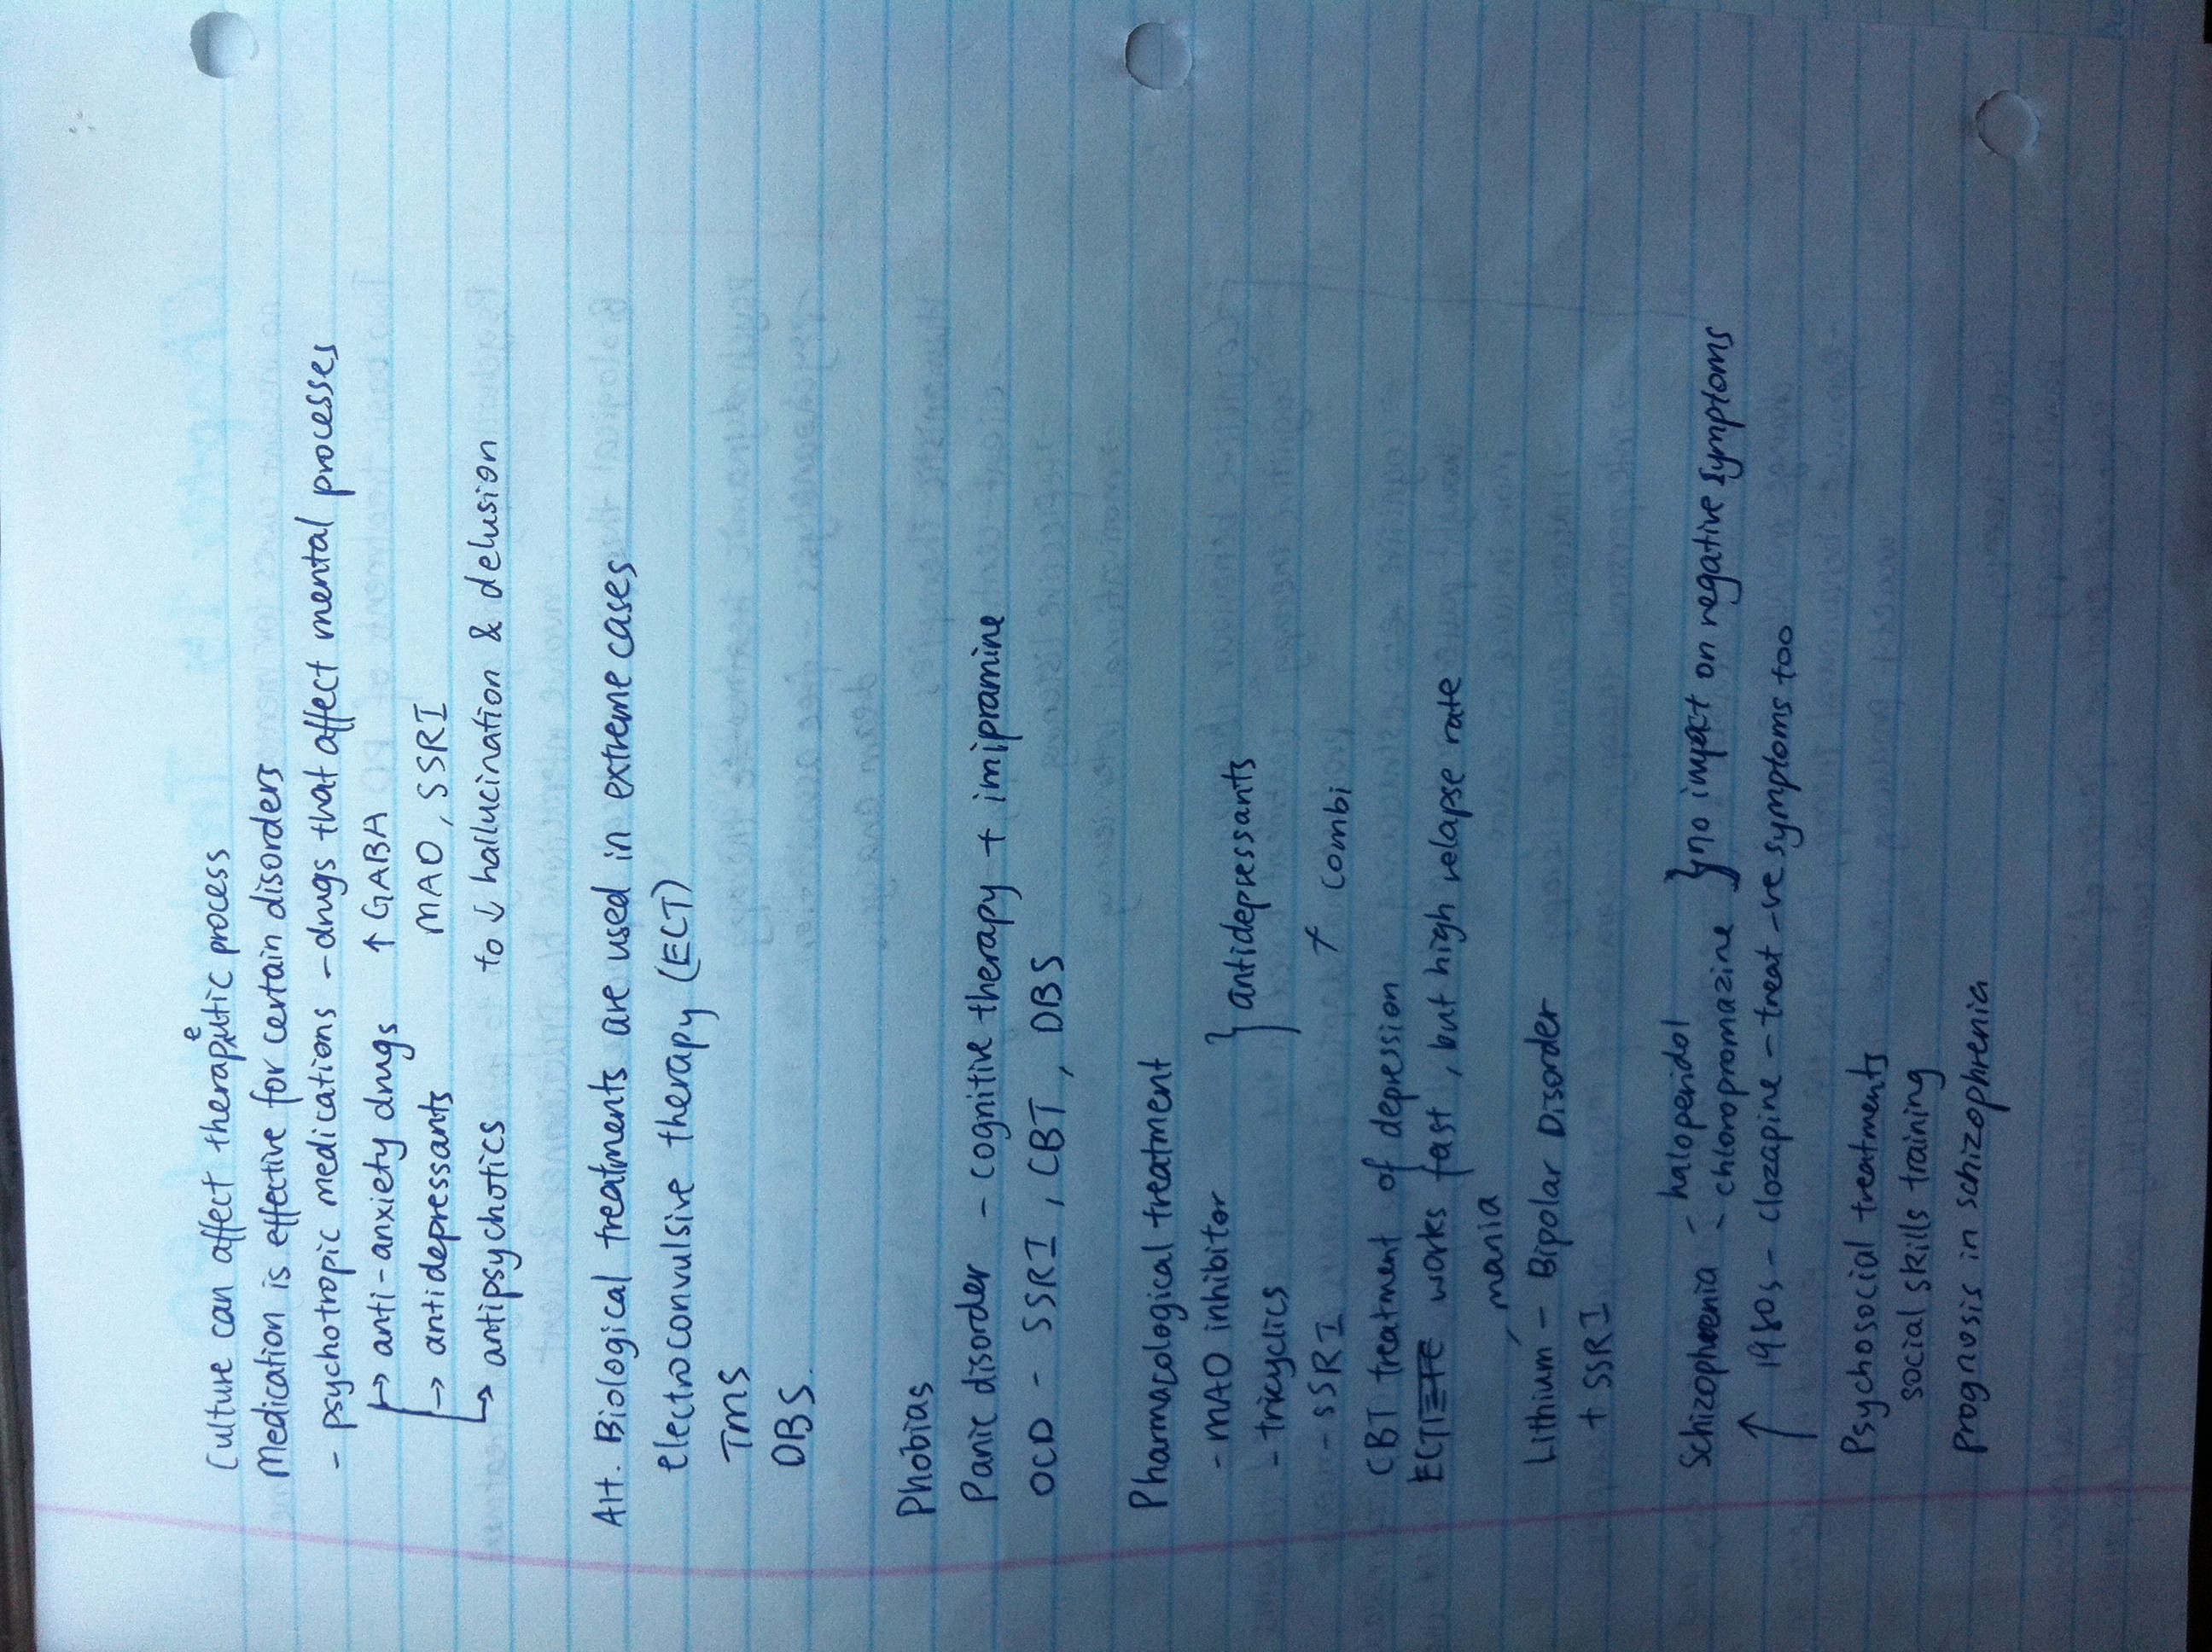 Culture can affect therapeutic process
Medication is effective for certain disorders
- psychotropic medications - drugs that affect mental processes
→ anti-anxiety drugs ↑ GABA
→ antidepressants MAO, SSRI
→ antipsychotics to ↓ hallucination & delusion
Alt. Biological treatments are used in extreme cases
electroconvulsive therapy (ECT)
TMS
DBS.
Phobias
Panic disorder - cognitive therapy + imipramine
OCD - SSRI, CBT, DBS
Pharmacological treatment
- MAO inhibitor
- tricyclics } antidepressants
- SSRI
CBT treatment of depression + combi
ECT works fast, but high relapse rate
mania
Lithium - Bipolar Disorder
+ SSRI
Schizophrenia - haloperidol
- chloropromazine } no impact on negative symptoms
↑ 1980s - clozapine - treat -ve symptoms too
Psychosocial treatments
social skills training
prognosis in schizophrenia